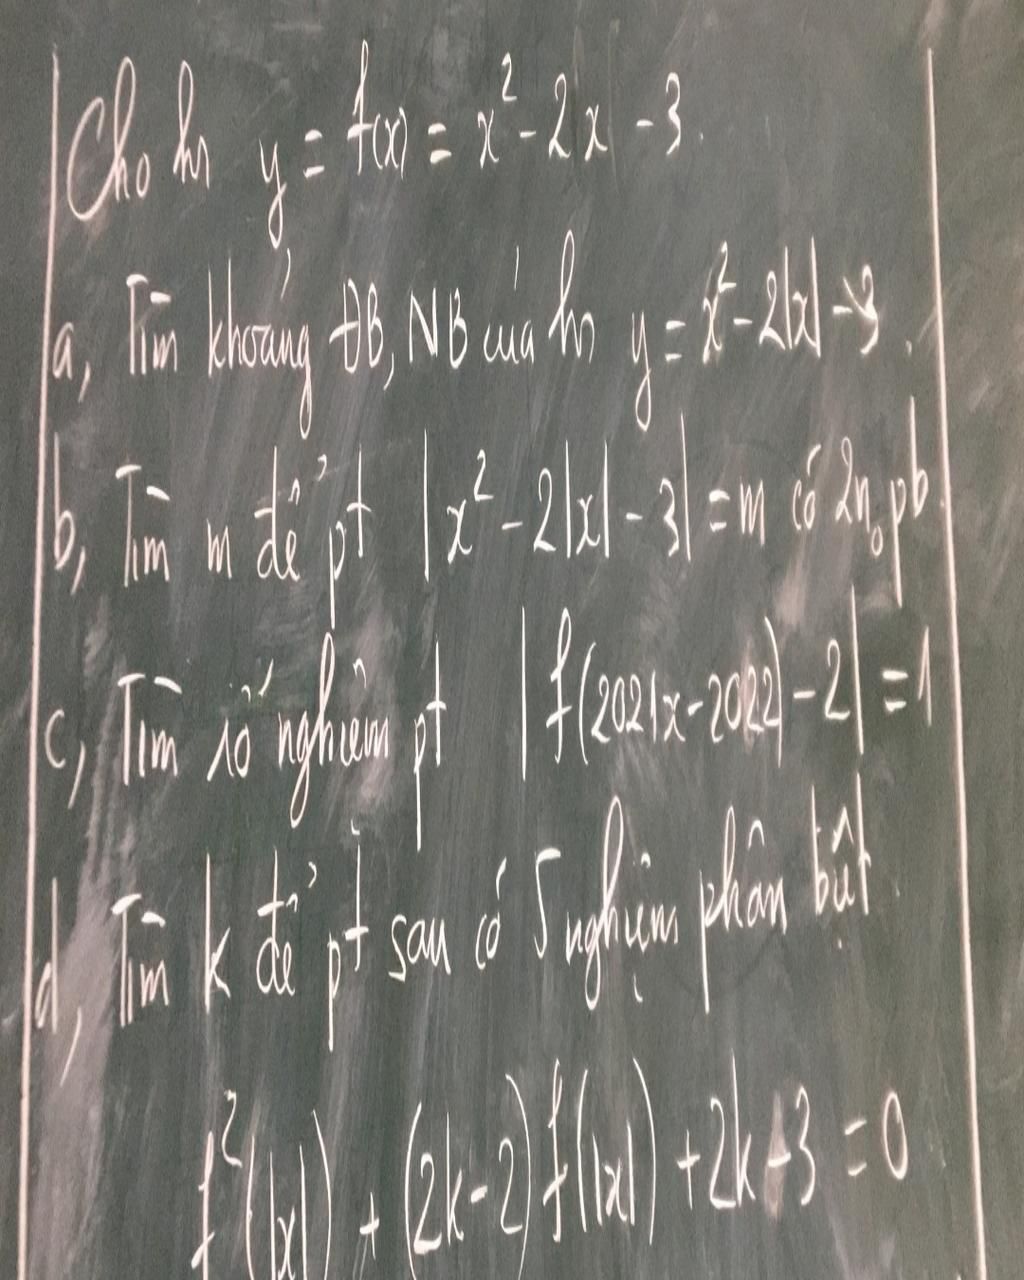 Cho hs y = f(x) = x² - 2x - 3.
a, Tìm khoảng ĐB, NB của hs y = x² - 2|x| - 3.
b, Tìm m để pt |x² - 2|x| - 3| = m có 2n₀ pb.
c, Tìm số nghiệm pt |f(2021x - 2022) - 2| = 1
d, Tìm k để pt sau có 5 nghiệm phân biệt
f²(|x|) + (2k - 2) f(|x|) + 2k - 3 = 0